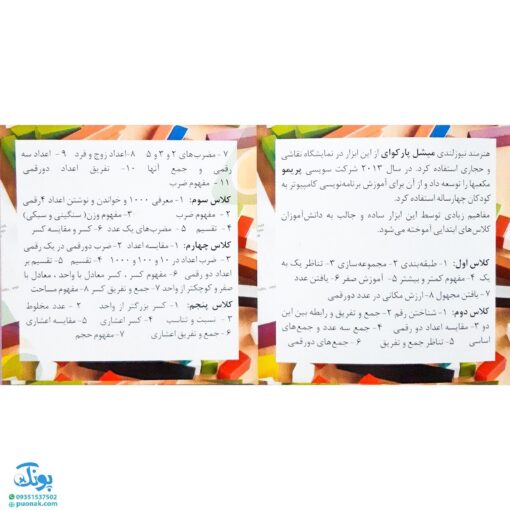 هنرمند نیوزلندی میشل پارکوای از این ابزار در نمایشگاه نقاشی
و حجاری استفاده کرد. در سال ۲۰۱۳ شرکت سوییسی پریمو
مکعبها را توسعه داد و از آن برای آموزش برنامه‌نویسی کامپیوتر به
کودکان چهارساله استفاده کرد.
مفاهیم زیادی توسط این ابزار ساده و جالب به دانش‌آموزان
کلاس‌های ابتدایی آموخته می‌شود.
کلاس اول: ۱- طبقه‌بندی ۲- مجموعه‌سازی ۳- تناظر یک به
یک ۴- مفهوم کمتر و بیشتر ۵- آموزش صفر ۶- یافتن عدد
۷- یافتن مجهول ۸- ارزش مکانی در عدد دورقمی
کلاس دوم: ۱- شناختن رقم ۲- جمع و تفریق و رابطه بین این
دو ۳- مقایسه اعداد دو رقمی ۴- جمع سه عدد و جمع‌های
اساسی ۵- تناظر جمع و تفریق ۶- جمع‌های دورقمی
۷- مضرب‌های ۲ و ۳ و ۵ ۸- اعداد زوج و فرد ۹- اعداد سه
رقمی و جمع آنها ۱۰- تفریق اعداد دورقمی
۱۱- مفهوم ضرب
کلاس سوم: ۱- معرفی ۱۰۰۰ و خواندن و نوشتن اعداد ۴رقمی
۲- مفهوم ضرب ۳- مفهوم وزن( سنگینی و سبکی)
۴- تقسیم ۵- مضرب‌های یک عدد ۶- کسر و مقایسه کسر
کلاس چهارم: ۱- مقایسه اعداد ۲- ضرب دورقمی در یک رقمی
۳- ضرب اعداد در ۱۰ و ۱۰۰ و ۱۰۰۰ ۴- تقسیم ۵- تقسیم بر
اعداد دو رقمی ۶- مفهوم کسر ، کسر معادل با واحد ، معادل با
صفر و کوچکتر از واحد ۷- جمع و تفریق کسر ۸- مفهوم مساحت
کلاس پنجم: ۱- کسر بزرگتر از واحد ۲- عدد مخلوط
۳- نسبت و تناسب ۴- کسر اعشاری ۵- مقایسه اعشاری
۶- جمع و تفریق اعشاری ۷- مفهوم حجم
پونک
09351537502
puonak.com